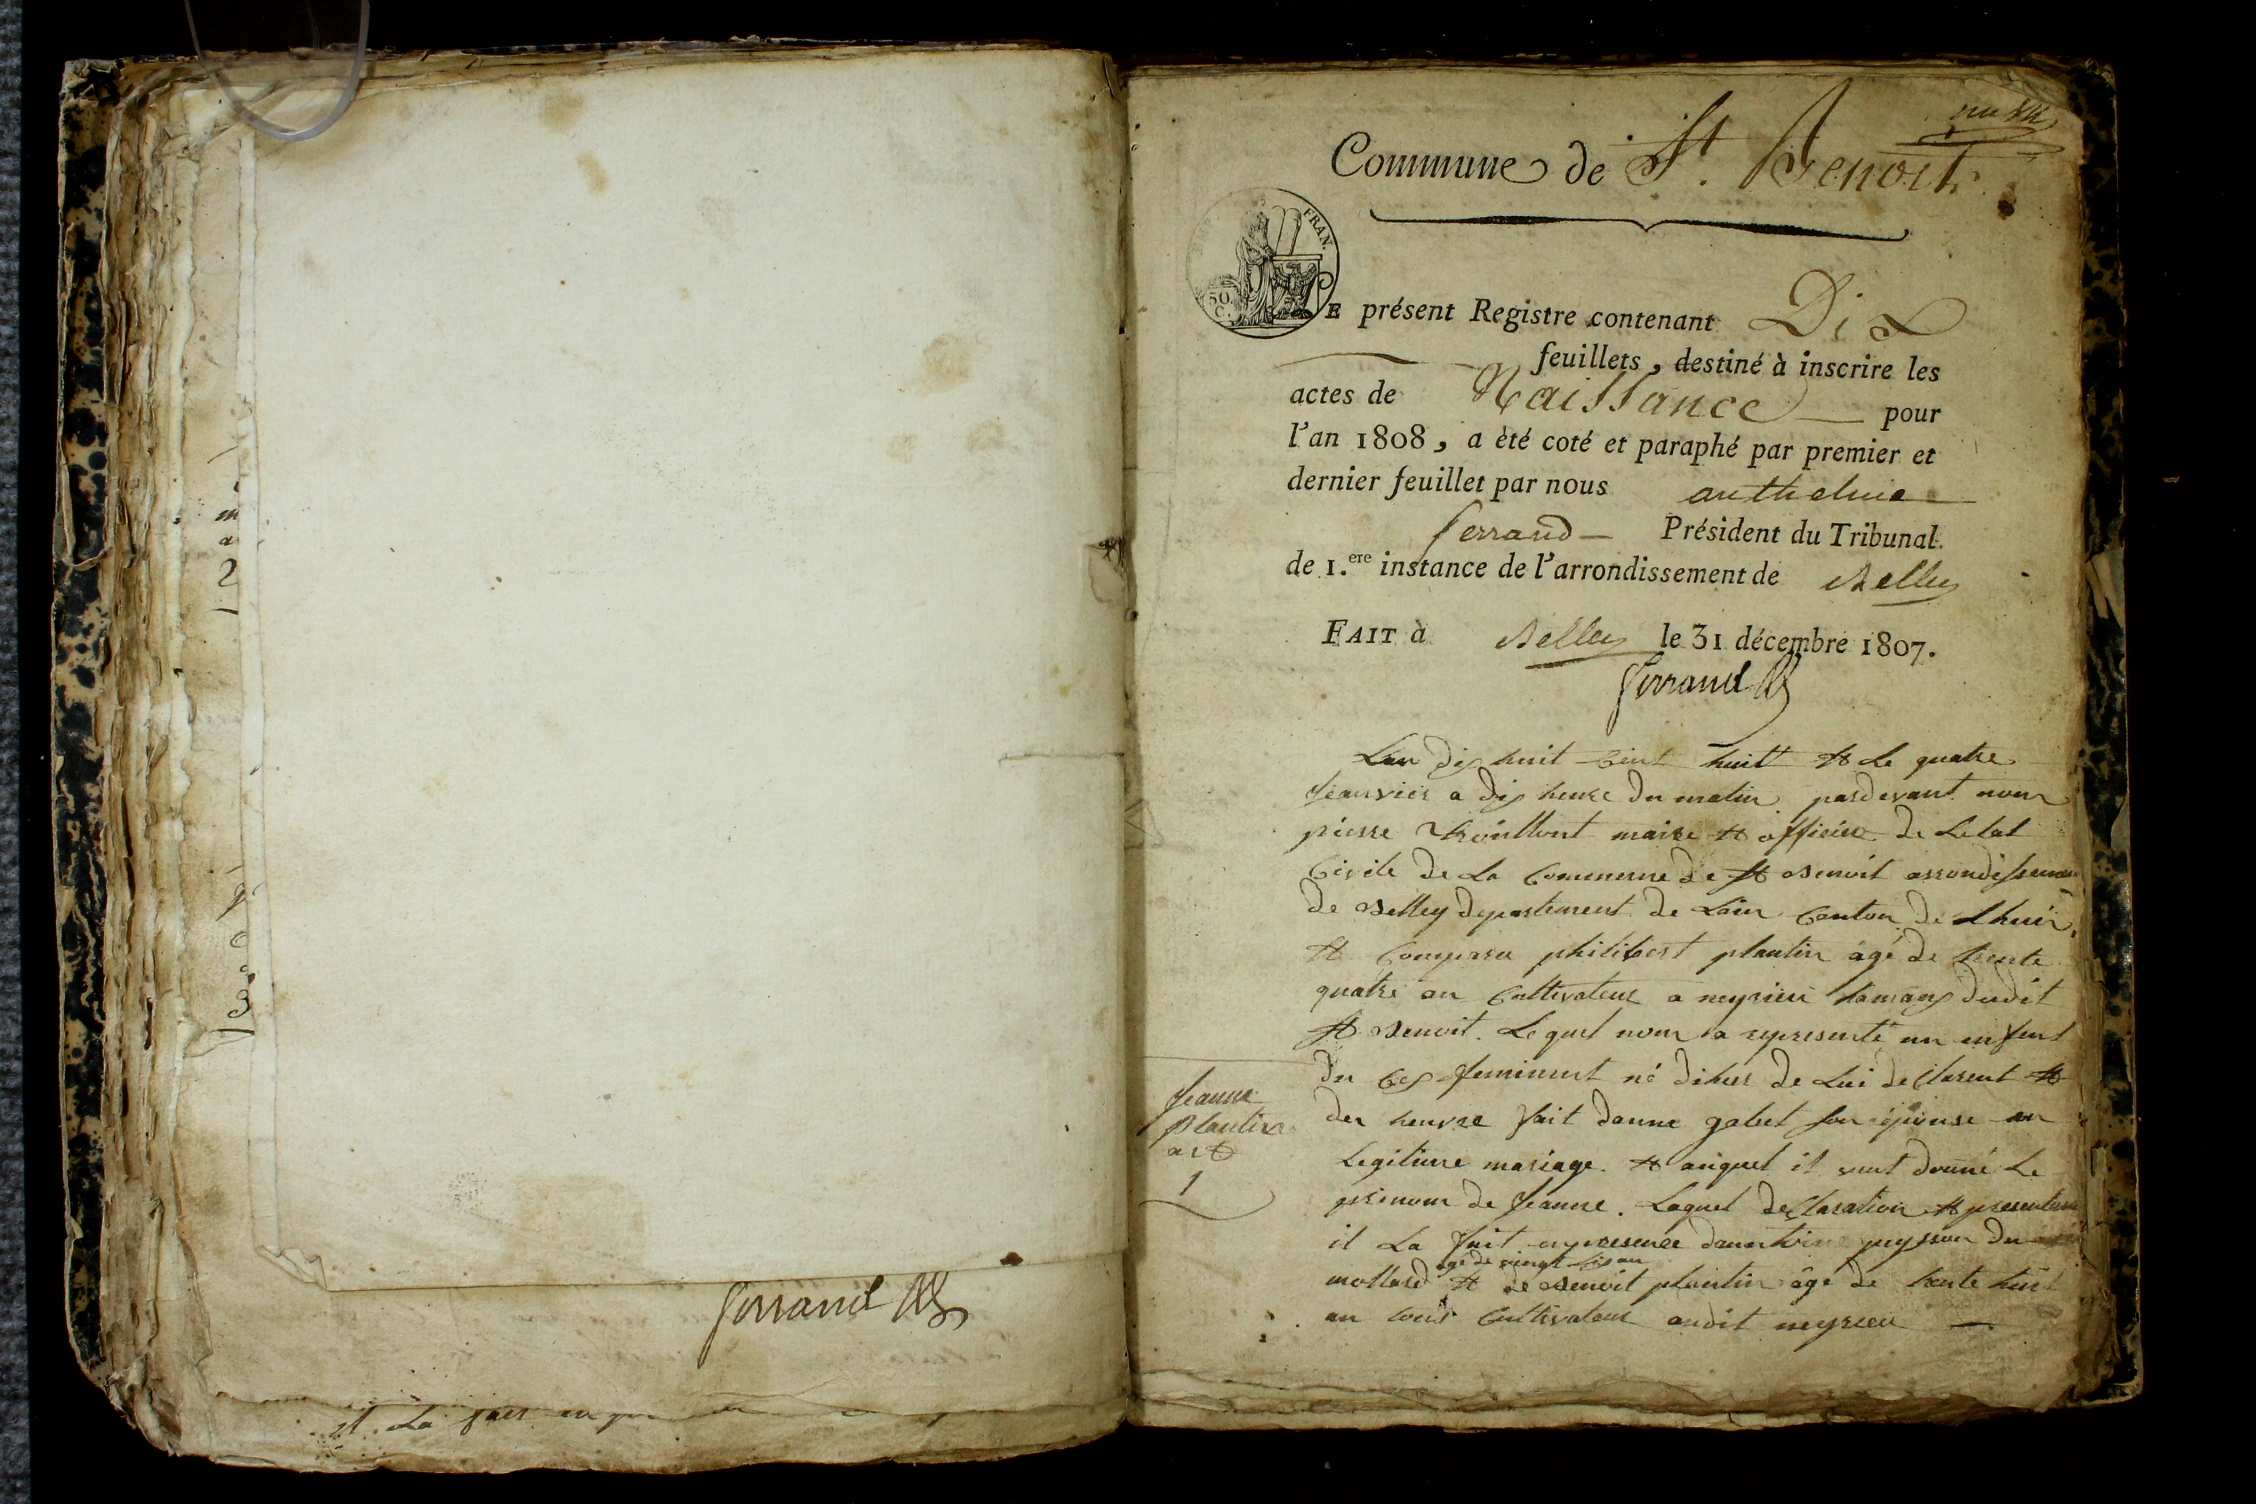 m
a
2
3
Ferrand
il La fait en
Commune de St. Benoit
FRAN.
50.
C.
E présent Registre contenant Dix
feuillets, destiné à inscrire les
actes de Naissance pour
l'an 1808, a été coté et paraphé par premier et
dernier feuillet par nous anthelme
ferrand Président du Tribunal
de 1.ere instance de l'arrondissement de Belley
FAIT à Belley le 31 décembre 1807.
Ferrand
Lan dix huit Cent huitt et le quatre
jeanvier a dix heure du matin pardevant nour
pierre maire et officier de Letat
Civile de La Commune de St Benoit arrondissemen
de Belley departement de Lain Canton de Lhuir
et Comparu philibert plantin âgé de trente
quatre an Cultivateur a neyrieu hamaux dudit
St Benoit. Lequel nour a representé un enfent
du Cex feminient né dihier de Lui declarent et
der heuvre fait danne gabet son épouse en
Legitime mariage. et auquel il veut donné Le
prenom de Jeanne. Laquel declaration et presentation
il La fait en presence peysson du
agé de vingt
mollard et de Benoit plantin âgé de trente huit
an tout Cultivateur audit neyrieu
Jeanne
Plantin
art
1